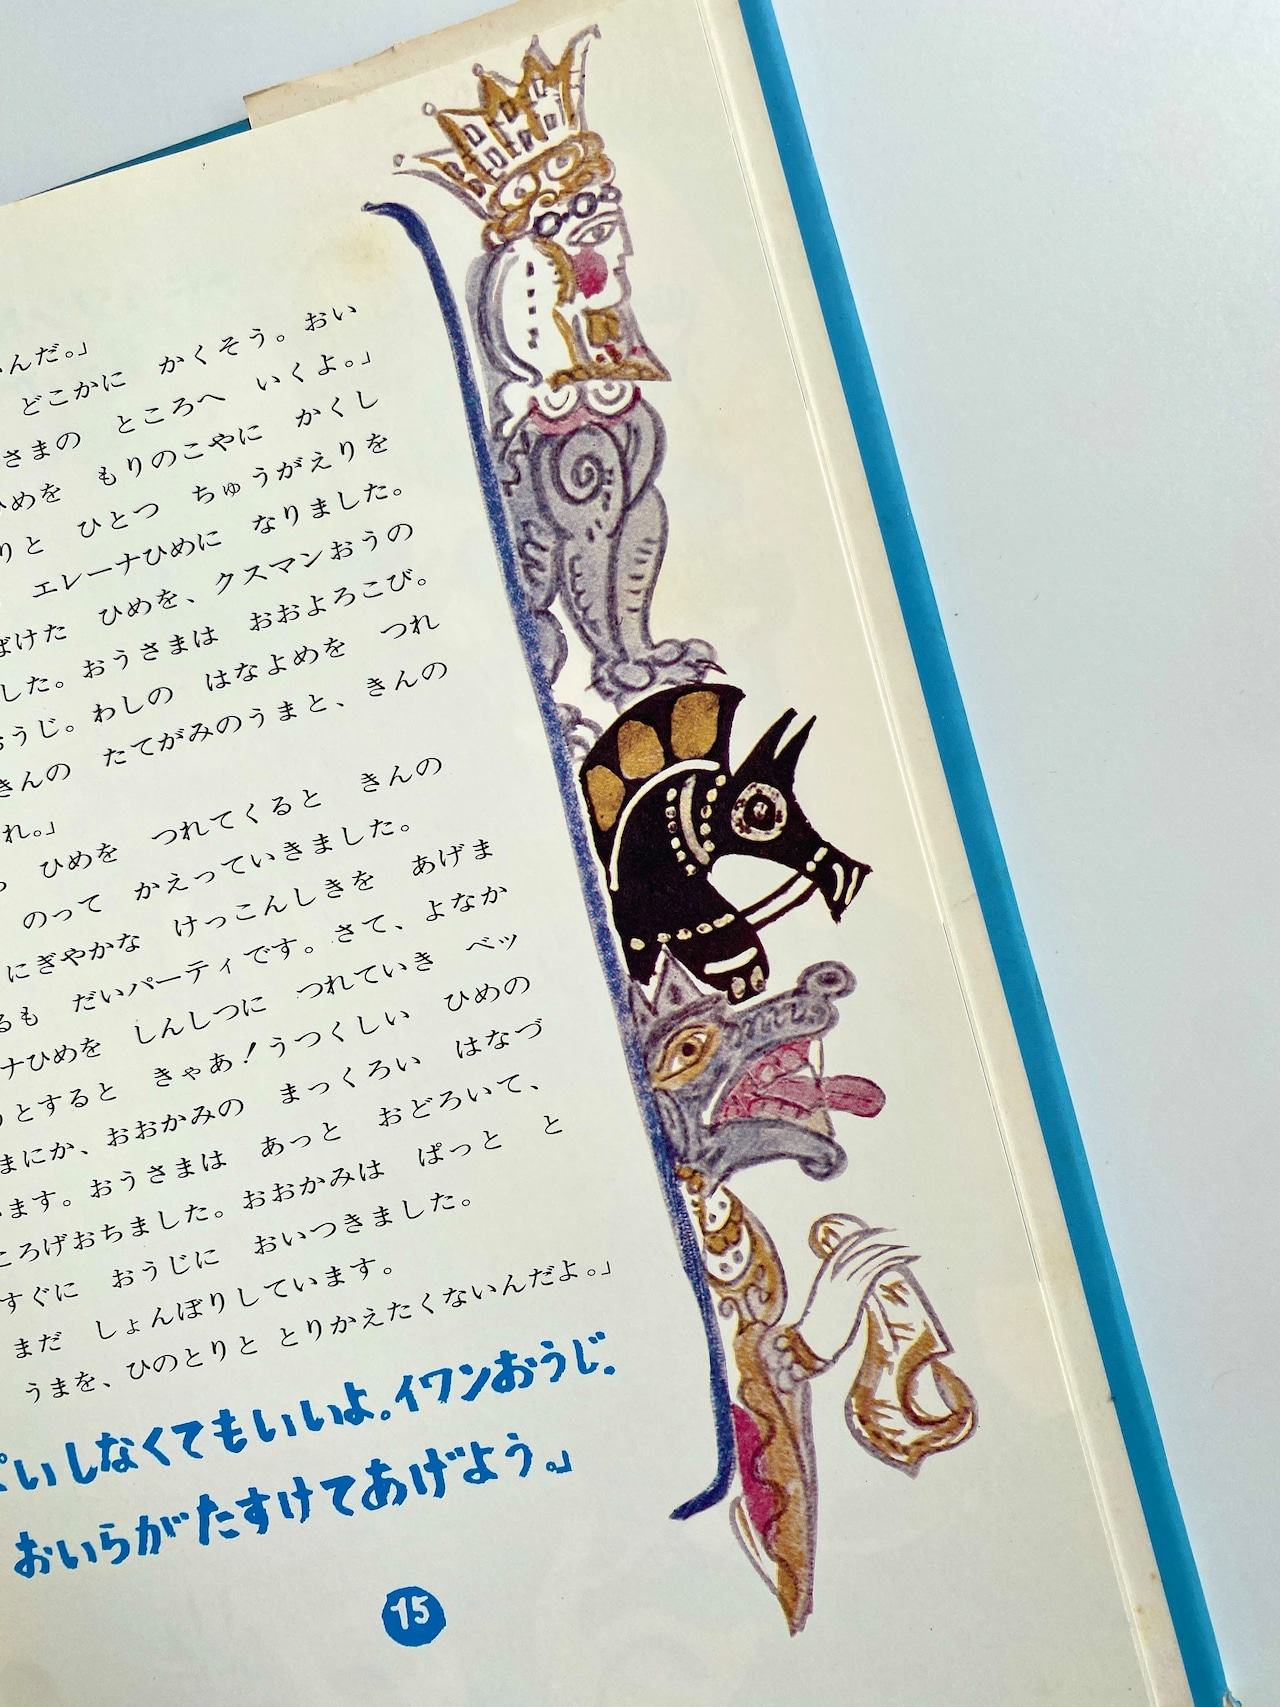 んだ。」
どこかに　かくそう。おい
さまの　ところへ　いくよ。」
ひめを　もりのこやに　かくし
りと　ひとつ　ちゅうがえりを
エレーナひめに　なりました。
ばけた　ひめを、クスマンおうの
した。おうさまは　おおよろこび。
おうじ。わしの　はなよめを　つれ
きんの　たてがみのうまと、きんの
れ。」
ひめを　つれてくると　きんの
のって　かえっていきました。
にぎやかな　けっこんしきを　あげま
るも　だいパーティです。さて、よなか
ナひめを　しんしつに　つれていき　ベッ
うとすると　きゃあ！うつくしい　ひめの
まにか、おおかみの　まっくろい　はなづ
います。おうさまは　あっと　おどろいて、
ころげおちました。おおかみは　ぱっと　と
すぐに　おうじに　おいつきました。
まだ　しょんぼりしています。
うまを、ひのとりと とりかえたくないんだよ。」
ぱいしなくてもいいよ。イワンおうじ。
おいらがたすけてあげよう。」
15